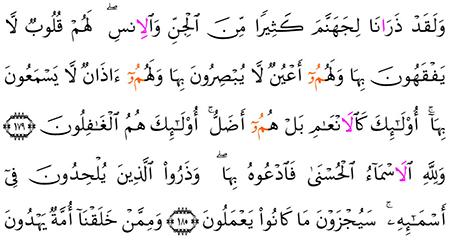 وَلَقَدْ ذَرَانَا لِجَهَنَّمَ كَثِيرًا مِّنَ ٱلْجِنِّ وَٱلِانسِ ۖ لَهُمْ قُلُوبٌ لَّا
يَفْقَهُونَ بِهَا وَلَهُمُۥٓ أَعْيُنٌ لَّا يُبْصِرُونَ بِهَا وَلَهُمُۥٓ ءَاذَانٌ لَّا يَسْمَعُونَ
بِهَآ ۚ أُوْلَـٰٓئِكَ كَٱلَانْعَـٰمِ بَلْ هُمُۥٓ أَضَلُّ ۚ أُوْلَـٰٓئِكَ هُمُ ٱلْغَـٰفِلُونَ ۝١٧٩
وَلِلَّهِ ٱلَاسْمَآءُ ٱلْحُسْنَىٰ فَٱدْعُوهُ بِهَا ۖ وَذَرُواْ ٱلَّذِينَ يُلْحِدُونَ فِىٓ
أَسْمَـٰٓئِهِۦ ۚ سَيُجْزَوْنَ مَا كَانُواْ يَعْمَلُونَ ۝١٨٠ وَمِمَّنْ خَلَقْنَآ أُمَّةٌ يَهْدُونَ